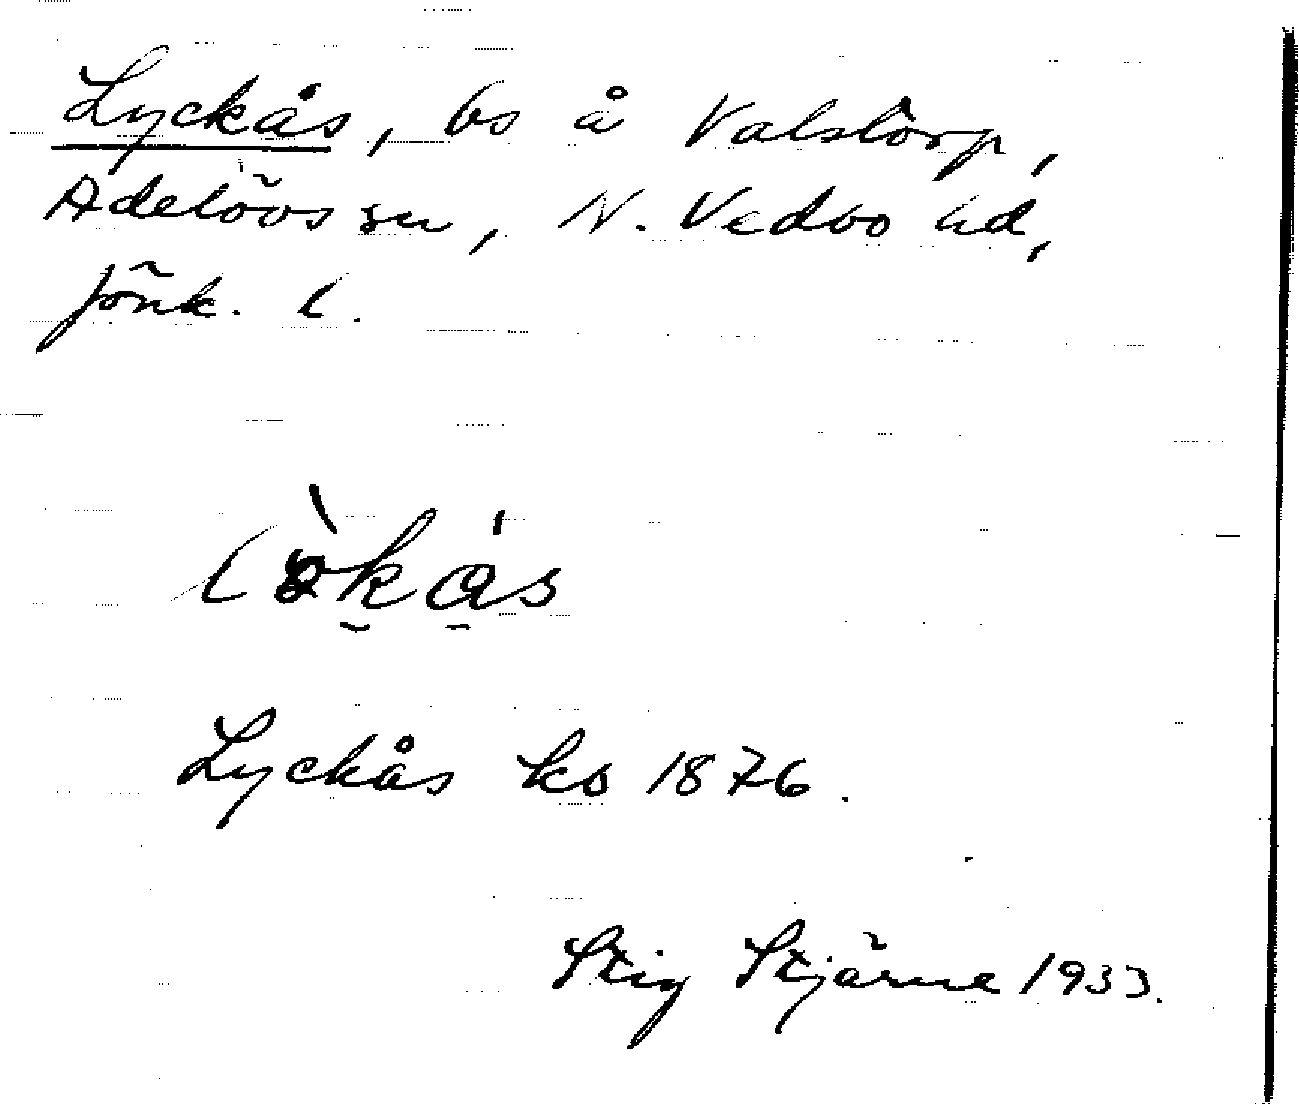 Lyckås, bs å Valstorp,
Adelövs sn, N. Vedbo hd,
Jönk. l.
Lyckås ks 1876.
Stig Stjärne 1933.